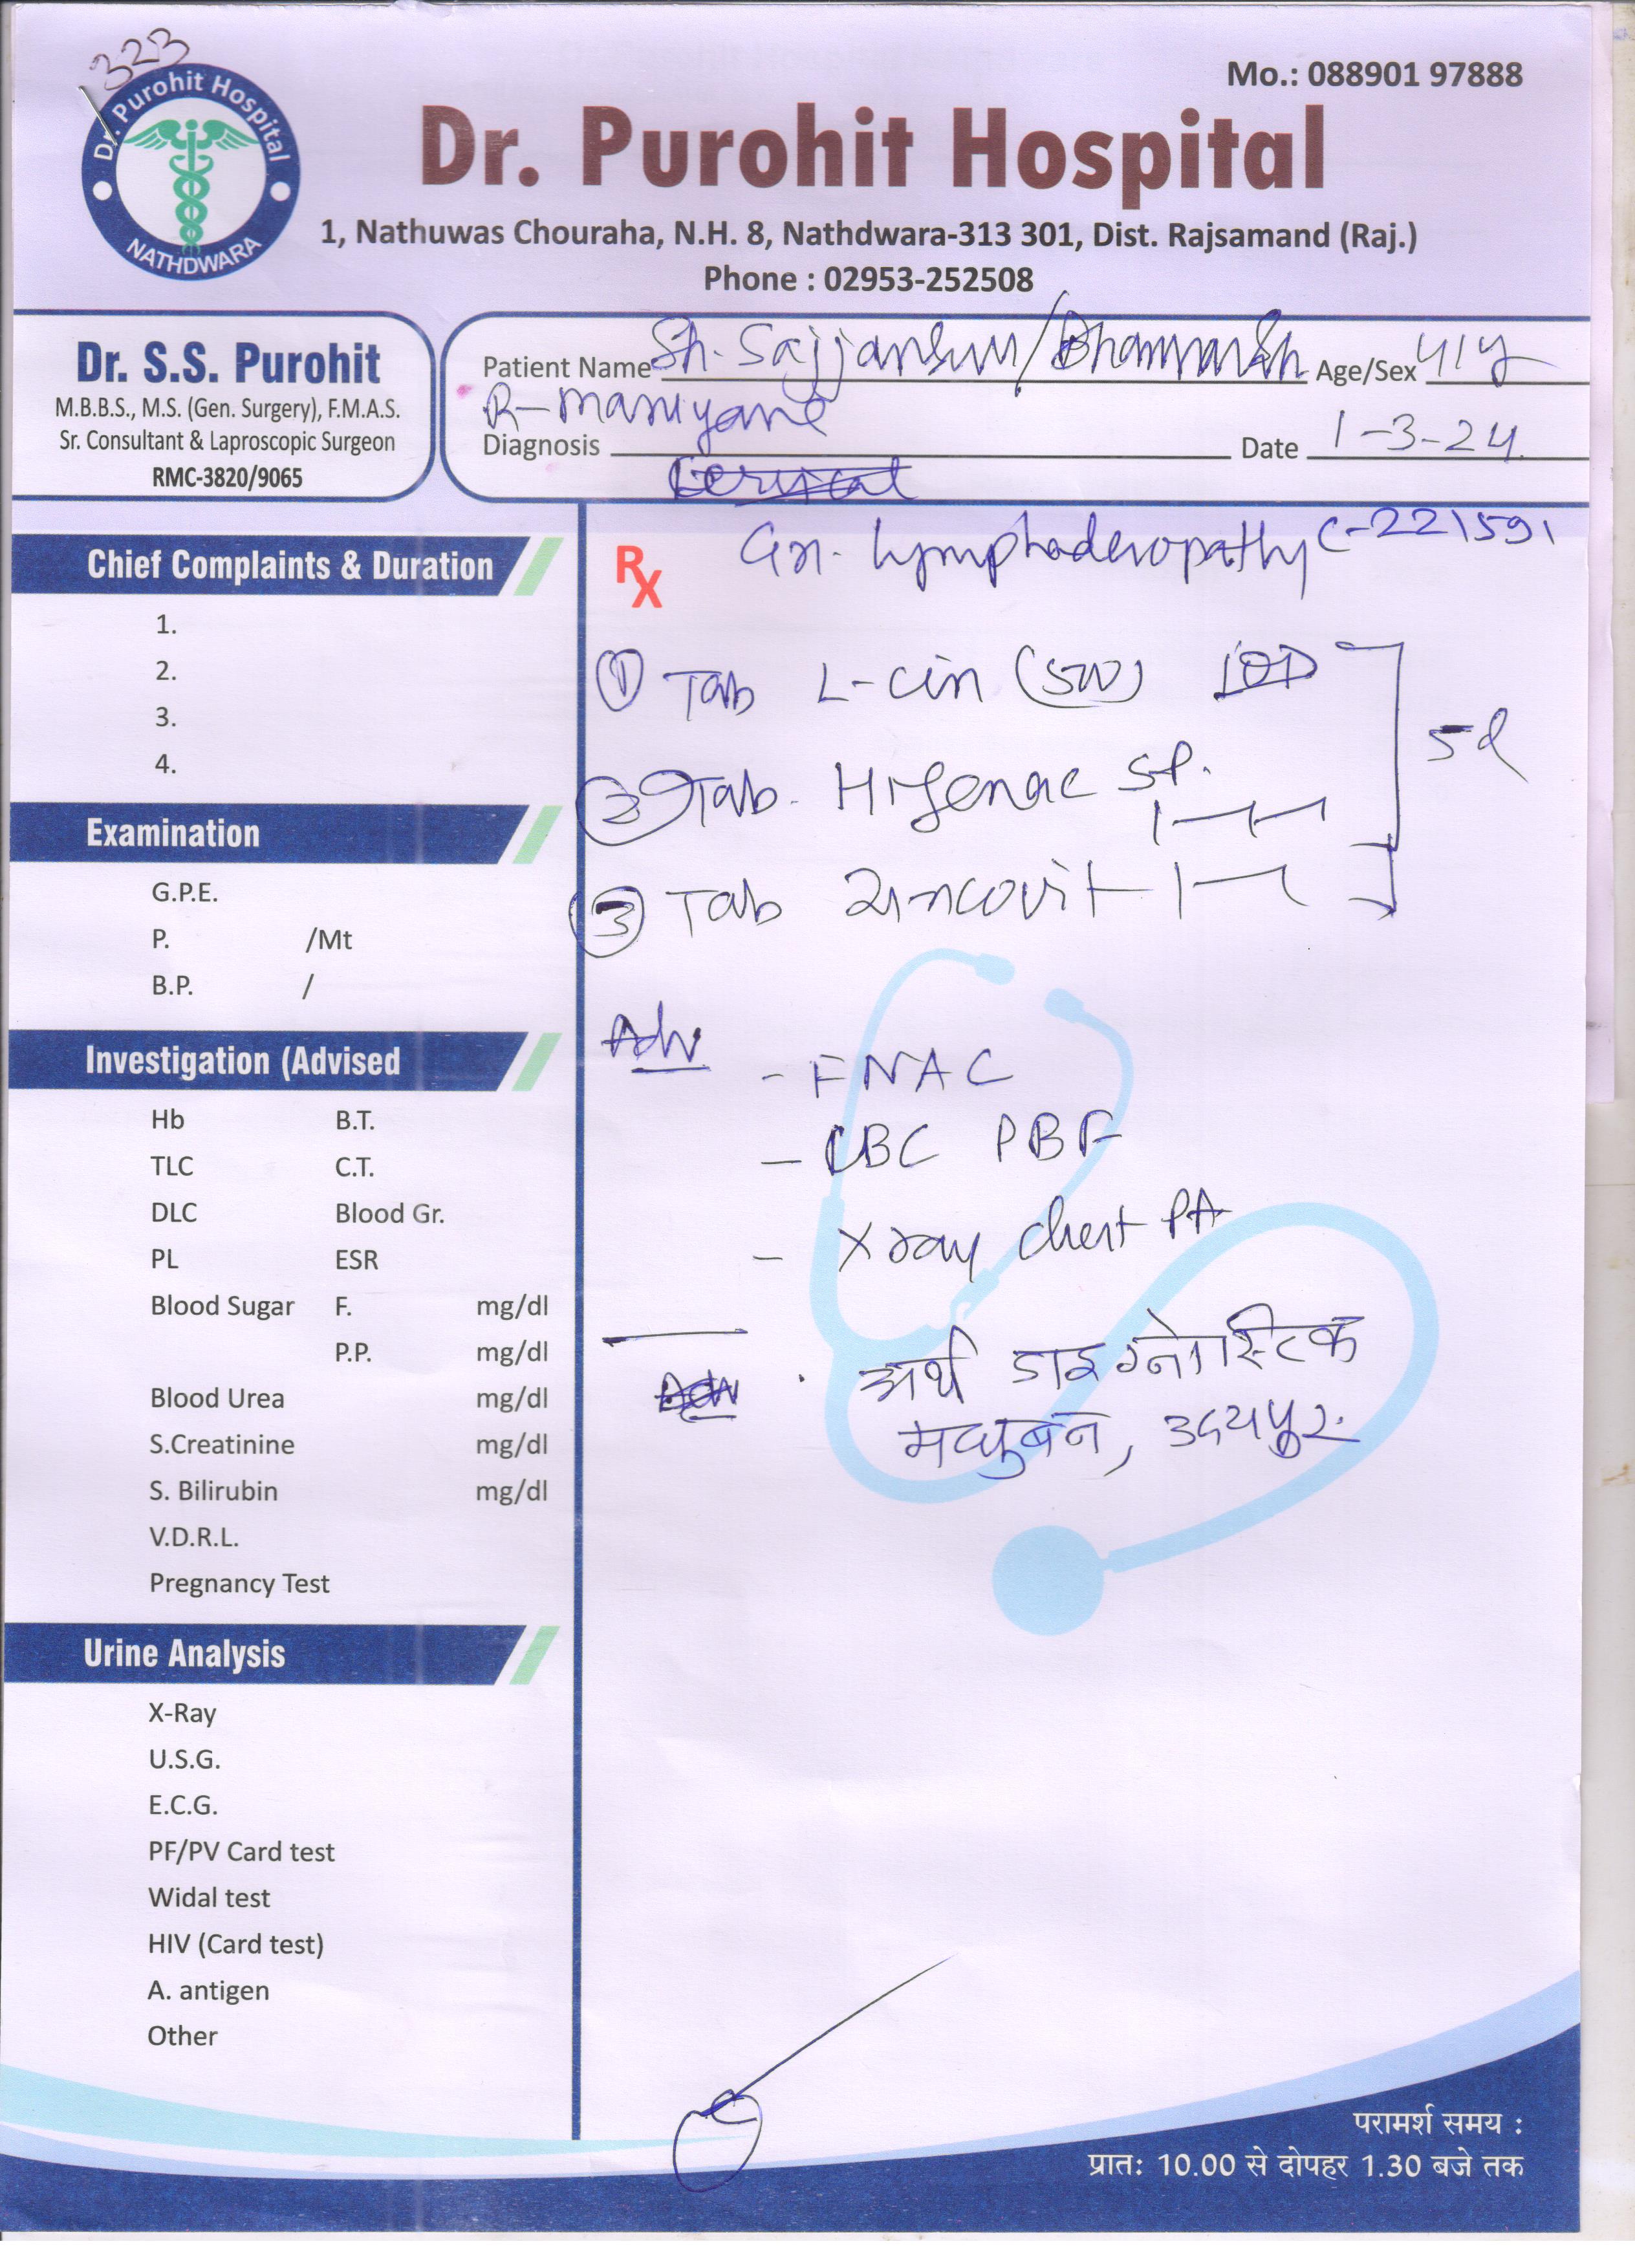 323
Dr. Purohit Hospital
NATHDWARA
Mo.: 088901 97888
Dr. Purohit Hospital
1, Nathuwas Chouraha, N.H. 8, Nathdwara-313 301, Dist. Rajsamand (Raj.)
Phone : 02953-252508
Dr. S.S. Purohit
M.B.B.S., M.S. (Gen. Surgery), F.M.A.S.
Sr. Consultant & Laproscopic Surgeon
RMC-3820/9065
Patient Name Sh. Age/Sex 41y
R-
Diagnosis Date 1-3-24.
Cervical
Gn. Lymphadenopathy C-221591
Chief Complaints & Duration
1.
2.
3.
4.
Examination
G.P.E.
P. /Mt
B.P. /
Investigation (Advised
Hb B.T.
TLC C.T.
DLC Blood Gr.
PL ESR
Blood Sugar F. mg/dl
P.P. mg/dl
Blood Urea mg/dl
S.Creatinine mg/dl
S. Bilirubin mg/dl
V.D.R.L.
Pregnancy Test
Urine Analysis
X-Ray
U.S.G.
E.C.G.
PF/PV Card test
Widal test
HIV (Card test)
A. antigen
Other
Rx
① Tab L-cin (500) 1OD
② Tab. Hifenac SP. 1-1-1
5d
③ Tab Zincovit 1-1
Adv
- FNAC
- CBC PBF
- Xray chest PA
Adv . अर्थ डाइग्नोस्टिक
मधुबन, उदयपुर.
परामर्श समय :
प्रातः 10.00 से दोपहर 1.30 बजे तक